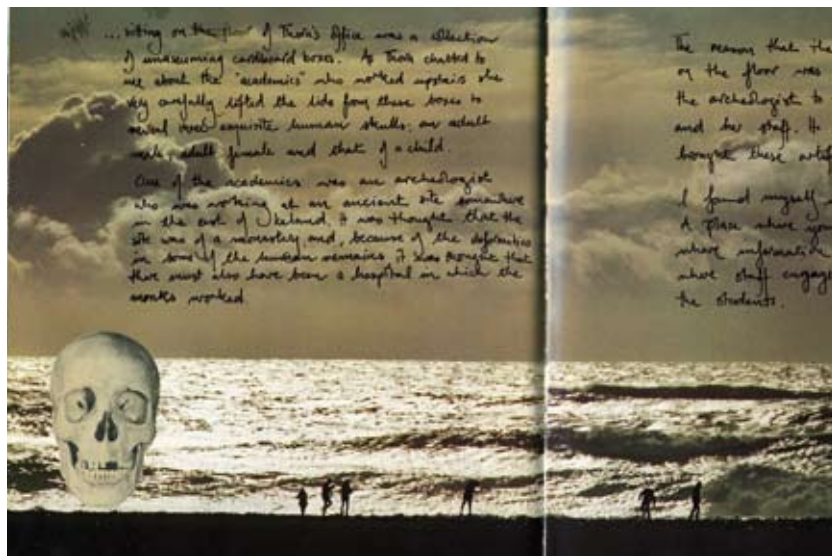 ...sitting on the floor of Thora's office was a collection
of unassuming cardboard boxes. As Thora chatted to
me about the "academics" who worked upstairs she
very carefully lifted the lids from these boxes to
reveal exquisite human skulls; an adult
male, adult female and that of a child.
One of the academics was an archeologist
who was working at an ancient site somewhere
in the east of Iceland. It was thought that the
site was of a monastery and, because of the deformities
in some of the human remains, it was thought that
there must also have been a hospital in which the
monks worked.
The reason that the
on the floor was
the archeologist to
and her staff. It
bought these
I found myself
A place where
where information
where staff
the students.